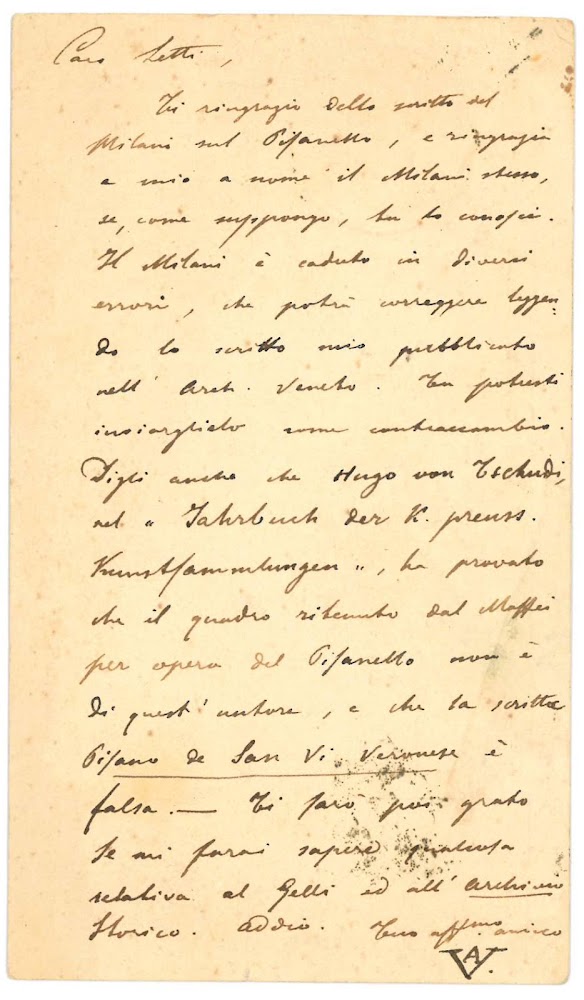 Caro Setti,
Ti ringrazio dello scritto del
Milani sul Pisanello, e ringrazia
a mio nome il Milani stesso,
se, come suppongo, tu lo conosci.
Il Milani è caduto in diversi
errori, che potrà correggere leggen-
do lo scritto mio pubblicato
nell' Arch. Veneto. Tu potresti
inviarglielo come contraccambio.
Digli anche che Hugo von Tschudi,
nel "Jahrbuch der K. preuss.
Kunstsammlungen", ha provato
che il quadro ritenuto dal Maffei
per opera del Pisanello non è
di quest' autore, e che la scritta
Pisano de San Vi Veronese è
falsa. — Ti sarò poi grato
se mi farai sapere qualcosa
relativa al Gelli ed all' Archivio
Storico. Addio. Tuo affmo amico
AV.